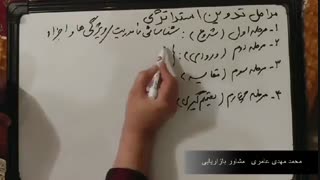 مراحل تدوین استراتژی
۱- مرحله اول (شروع): شناسایی مأموریت، ویژگی ها و اجزاء
۲- مرحله دوم (ورودی):
۳- مرحله سوم (مقایسه):
۴- مرحله چهارم (تصمیم گیری)
محمد مهدی عامری مشاور بازاریابی